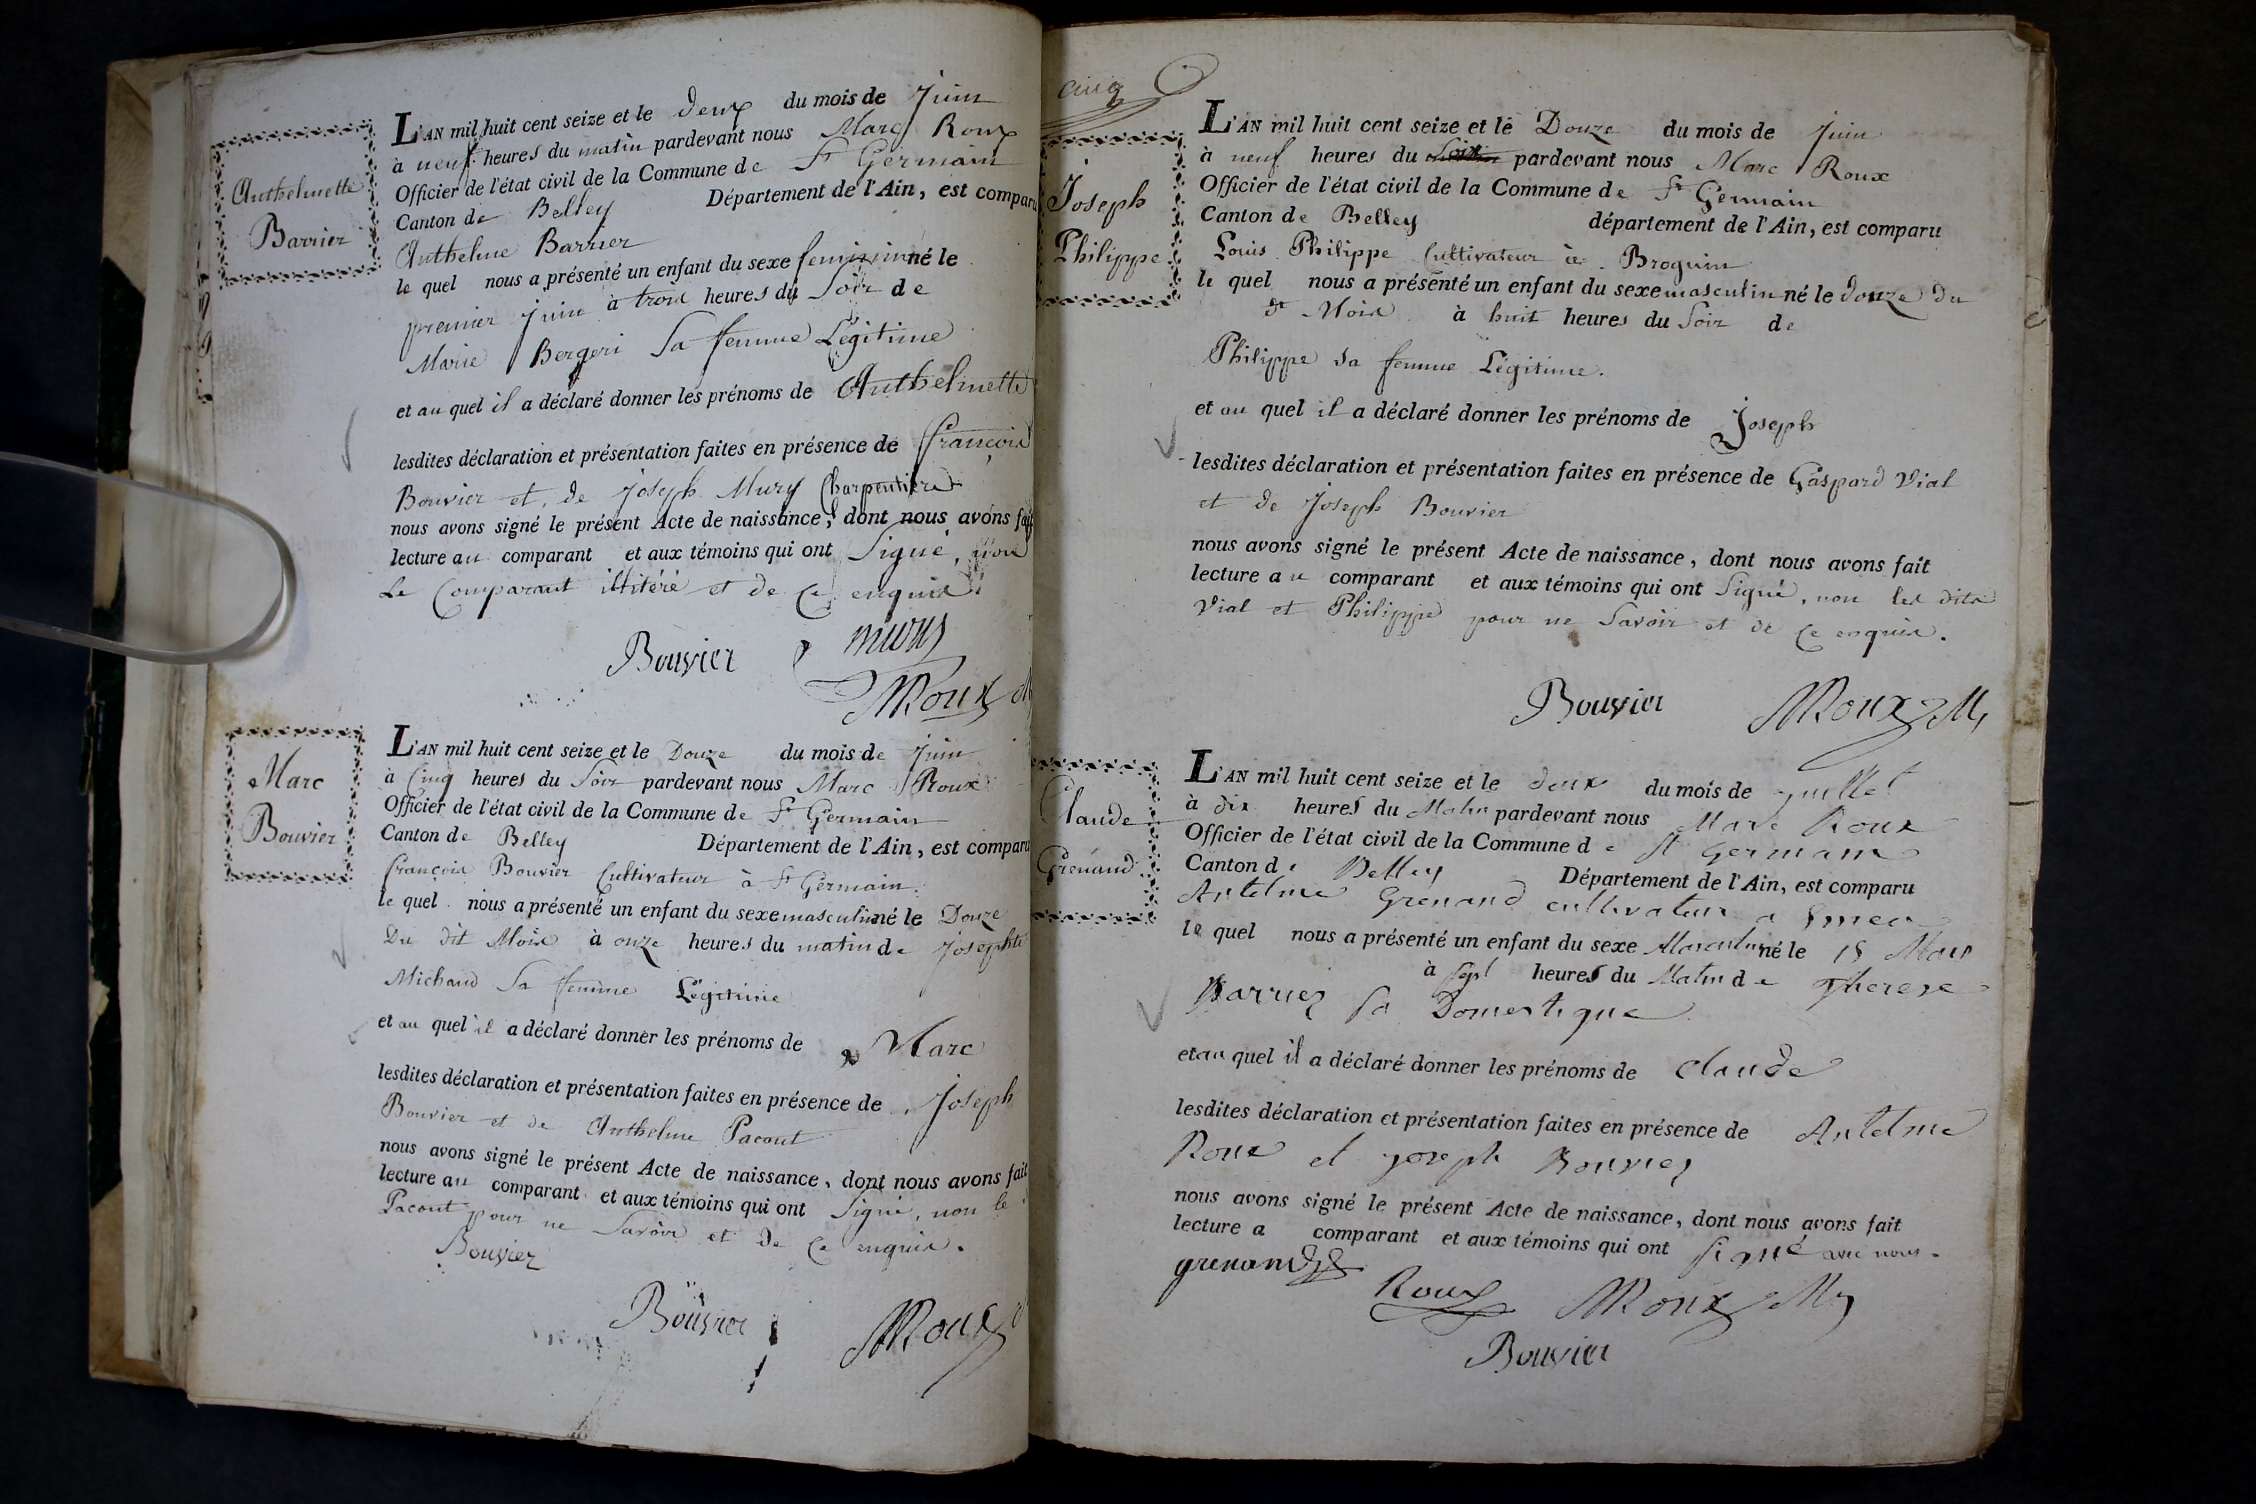 Anthelmette
Barrier
L'AN mil huit cent seize et le deux du mois de Juin
à neuf heures du matin pardevant nous Marc Roux
Officier de l'état civil de la Commune de St Germain
Canton de Belley Département de l'Ain, est comparu
Anthelme Barrier
le quel nous a présenté un enfant du sexe feminin né le
premier Juin à trois heures du Soir de
Marie Bergeri Sa femme Légitime
et au quel il a déclaré donner les prénoms de Anthelmette
lesdites déclaration et présentation faites en présence de François
Bouvier et de Joseph Mury Charpentiers
nous avons signé le présent Acte de naissance, dont nous avons fait
lecture au comparant et aux témoins qui ont Signé, non
Le Comparant illitéré et de Ce enquis
Bouvier mury
MRoux
Marc
Bouvier
L'AN mil huit cent seize et le Douze du mois de Juin
à Cinq heures du Soir pardevant nous Marc Roux
Officier de l'état civil de la Commune de St Germain
Canton de Belley Département de l'Ain, est comparu
françois Bouvier Cultivateur à St Germain.
le quel nous a présenté un enfant du sexe masculin né le Douze
Du dit Mois à onze heures du matin de Josephte
Michaud Sa femme Légitime
et au quel il a déclaré donner les prénoms de Marc
lesdites déclaration et présentation faites en présence de Joseph
Bouvier et de Anthelme Pacout
nous avons signé le présent Acte de naissance, dont nous avons fait
lecture au comparant et aux témoins qui ont Signé, non le
Pacout pour ne Savoir et de Ce enquis.
Bouvier
Bouvier MRoux
cinq
Joseph
Philippe
L'AN mil huit cent seize et le Douze du mois de Juin
à neuf heures du pardevant nous Marc Roux
Officier de l'état civil de la Commune de St Germain
Canton de Belley département de l'Ain, est comparu
Louis Philippe Cultivateur à Brognin
le quel nous a présenté un enfant du sexe masculin né le douze du
dt Mois à huit heures du Soir de
Philippe sa femme Légitime.
et au quel il a déclaré donner les prénoms de Joseph
lesdites déclaration et présentation faites en présence de Gaspard Vial
et de Joseph Bouvier
nous avons signé le présent Acte de naissance, dont nous avons fait
lecture au comparant et aux témoins qui ont Signé, non les dits
Vial et Philippe pour ne Savoir et de Ce enquis.
Bouvier MRoux
Claude
Grenand
L'AN mil huit cent seize et le deux du mois de juillet
à dix heures du Matin pardevant nous Marc Roux
Officier de l'état civil de la Commune de St germain
Canton de Belley Département de l'Ain, est comparu
Antelme Grenand cultivateur a
le quel nous a présenté un enfant du sexe Masculin né le 15 Mars
à sept heures du Matin de therese
Barrier sa Domestique
et au quel il a déclaré donner les prénoms de claude
lesdites déclaration et présentation faites en présence de Antelme
Roux et joseph Bouvier
nous avons signé le présent Acte de naissance, dont nous avons fait
lecture a comparant et aux témoins qui ont signé avec nous.
grenand
Roux MRoux
Bouvier